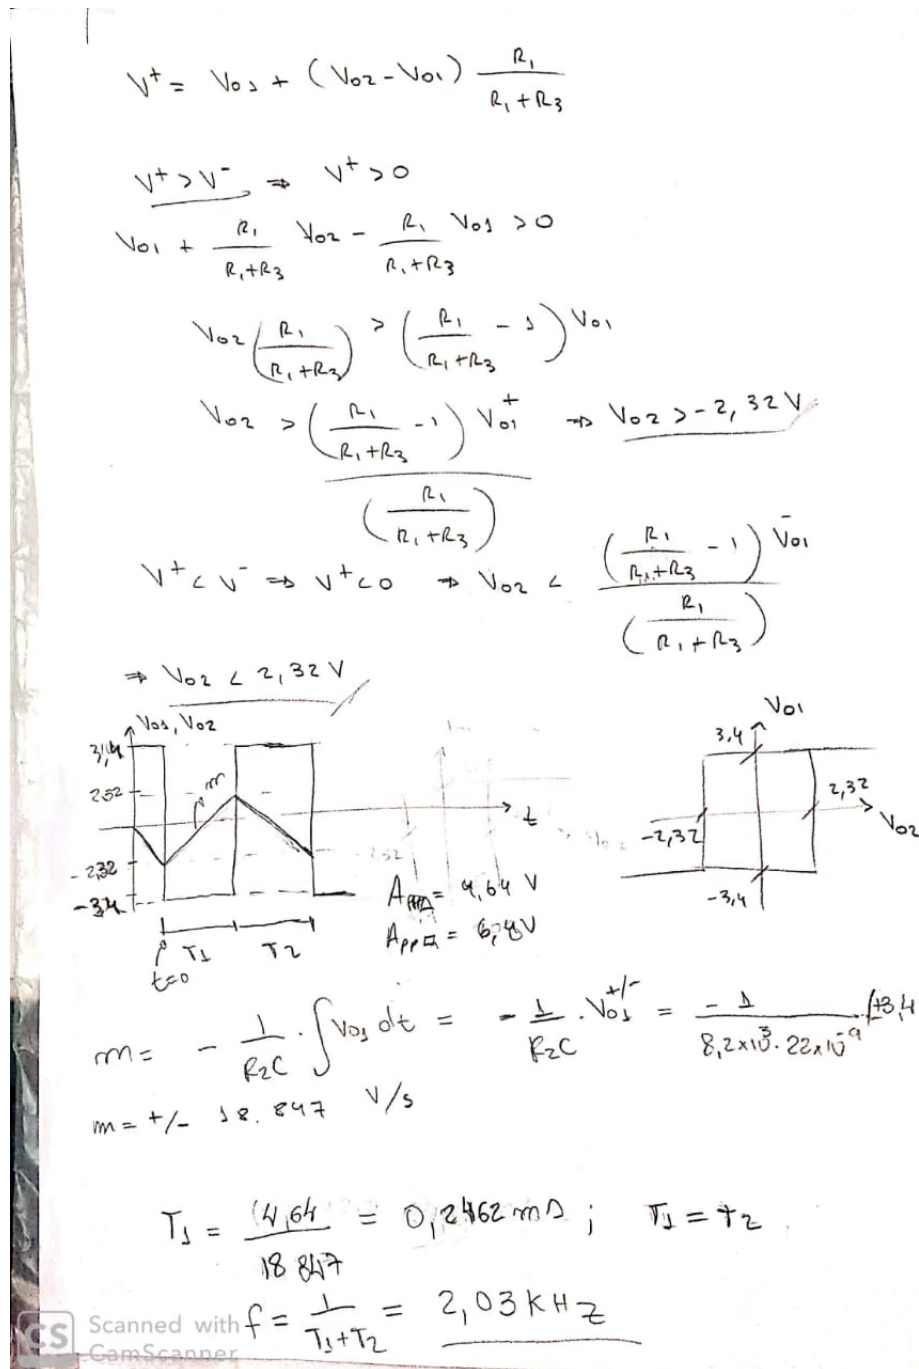 V⁺ = Vo1 + (Vo2 - Vo1) R1 / (R1 + R3)
V⁺ > V⁻ ⇒ V⁺ > 0
Vo1 + R1 / (R1 + R3) Vo2 - R1 / (R1 + R3) Vo1 > 0
Vo2 (R1 / (R1 + R3)) > (R1 / (R1 + R3) - 1) Vo1
Vo2 > (R1 / (R1 + R3) - 1) Vo1⁺ / (R1 / (R1 + R3)) ⇒ Vo2 > -2,32 V
V⁺ < V⁻ ⇒ V⁺ < 0 ⇒ Vo2 < (R1 / (R1 + R3) - 1) Vo1⁻ / (R1 / (R1 + R3))
⇒ Vo2 < 2,32 V
Vo1, Vo2
3,4
2,32
m
t
-2,32
-3,4
T1 T2
t=0
Vo1
3,4
2,32
Vo2
-2,32
-3,4
App = 4,64 V
App = 6,8 V
m = - 1 / R2C . ∫ Vo1 dt = - 1 / R2C . Vo1⁺/⁻ = - 1 / 8,2x10³ . 22x10⁻⁹ . (±3,4
m = +/- 18.847 V/s
T1 = 4,64 / 18 847 = 0,2462 ms ; T1 = T2
f = 1 / T1+T2 = 2,03 KHz
CS Scanned with
CamScanner